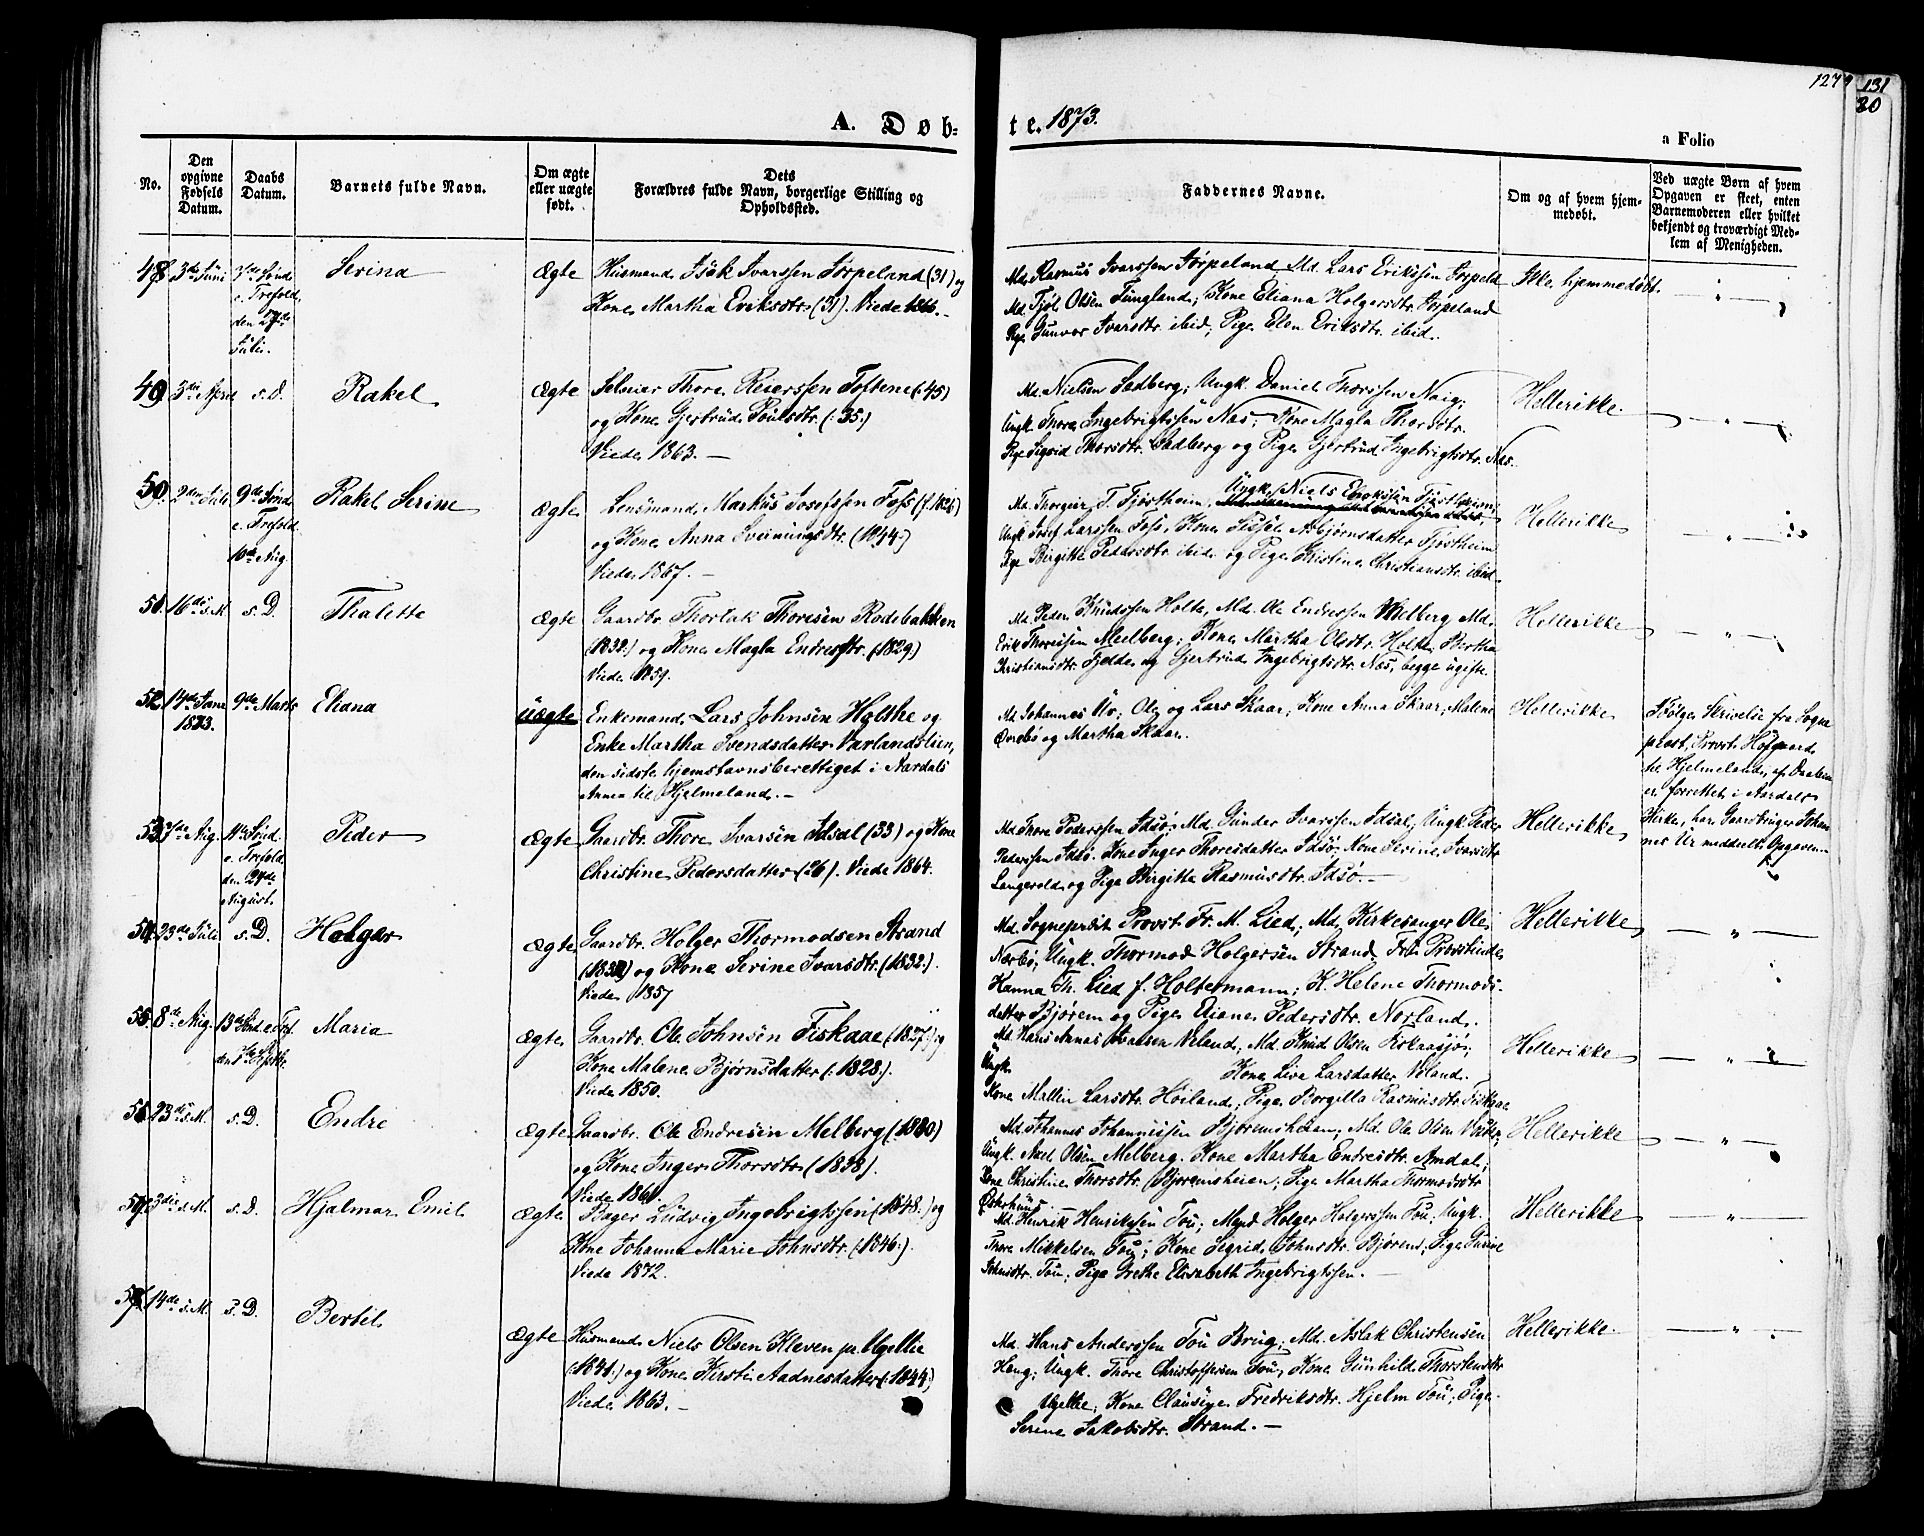 127
131
20
A. Døb-
te. 1873.
a Folio
No.
Den opgivne Fødsels Datum.
Daabs Datum.
Barnets fulde Navn.
Om ægte eller uægte født.
Dets Forældres fulde Navn, borgerlige Stilling og Opholdssted.
Faddernes Navne.
Om og af hvem hjemmedøbt.
Ved uægte Børn af hvem Opgaven er skeet, enten Barnemoderen eller hvilket bekjendt og troværdigt Medlem af Menigheden.
48. 3die Juni
7de Sønd. e. Trefold. den 27de Juli.
Serina
Ægte
Husmand Isak Ivarssen Jørpeland (31) og
Kone Martha Eriksdtr. (31). Viede 1866.-
Md. Rasmus Ivarssen Jørpeland, Md. Lars Erikssen Jørpeld
Md. Tjøl Olsen Tungland; Kone Eliana Holgersdtr. Jørpeland
Pge Gunvor Ivarsdtr. ibid; Pige Elen Eriksdtr. ibid.
Ikke hjemmedøbt.
49 3die April
s.D.
Rakel
Ægte
Thore Reierssen Toftene (45)
og Kone Gjertrud Poulsdtr. (35.)
Viede 1863. -
Md. Nielsen Sadberg; Ungk. Daniel Thorssen Naig;
Ungk. Thore Ingebrigtssen Nas; Kone Magla Thorsdtr.
Pge Sigrid Thorsdtr. Sadberg og Pige Gjertrud Ingebrigtsdtr. Nas.
Hellerikke.
50. 2den Juli
9de Sønd. e. Trefold. 10de Aug.
Rakel Serine
Ægte
Lensmand Markus Josefssen Foss (f. 1826)
og Kone Anna Sveinungsdtr. (1844.)
Viede 1867. -
Md. Thorgeir T. Tjøstheim, Ungk. Niels Tjøstheim;
Ungk. Josef Larssen Foss, Kone Sissel Asbjørnsdatter Tjøstheim
Pge Birgitte Pedersdtr. ibid. og Pige Kristine Christiansdtr. ibid.
Hellerikke
51. 16de s.M.
s.D.
Thalette
Ægte
Gaardbr. Thorlak Thoresen Rodebakken
(1832.) og Kone Magla Endresdtr. (1829)
Viede 1859.
Md. Peder Knudssen Holta, Md. Ole Endressen Melberg, Md.
Erik Thoressen Melberg; Kone Martha Olsdtr. Holta, Bertha
Christiansdtr. Fjelde og Gjertrud Ingebrigtsdtr. Nas, begge ugifte.
Hellerikke
52 14de Janr. 1873.
9de Marts
Eliana
uægte
Enkemand Lars Johnsen Holthe og
Enke Martha Svendsdatter Varlandslien,
den sidste hjemstavnsberettiget i Aardals
Annex til Hjelmeland. -
Md. Johannes Ur; Ole og Lars Skaar; Kone Anna Skaar; Malene
Ovrebø og Martha Skaar.
Hellerikke
Ifølge Skrivelse fra Sogne
prest, Provst Hofgaard
til Hjelmeland, af Daaben
er forrettet i Aardals
Kirke, har Gaardbruger Johan
nes Ur meddeelt Opgaven.
53. 7de Aug.
11te Sønd. e. Trefold. den 24de August.
Peder
Ægte
Gaardbr. Thore Ivarsen Idsal (33) og Kone
Christine Pedersdatter (26). Viede 1864.
Md. Thore Pederssen Idsø; Md. Gunder Ivarssen Idsal; Ungk. Peder
Pederssen Idsø. Kone Inger Thoresdatter Idsø. Kone Serine Ivarsdtr
Langevold og Pige Birgitta Rasmusdtr. Idsø. -
Hellerikke
54. 23de Juli
s.D.
Holger
Ægte
Gaardbr. Holger Thormodsen Strand
og Kone Serine Ivarsdtr. (1832.).
Viede 1857
Md. Sogneprest Provst Fr. M. Lied, Md. Kirkesanger Ole
Nærbø; Ungk. Thormod Holgersen Strand. Fru Provstinde
Hanna Th. Lied f. Holtermann; K. Helene Thormods-
datter Bjørem og Pige Eliane Pedersdtr. Norland.
Hellerikke
55. 8de Aug.
13de Sønd. e. Tref. den 7de Septbr.
Maria
Ægte
Gaardbr. Ole Johnsen Fiskaae (1827.) og
Kone Malene Bjørnsdatter (1828).
Viede 1850.
Md. Hans Annas Ivarsen Veland; Md. Knud Olsen Fiskaasjø;
Ungk. Kone Liva Larsdatter Voland.
Kone Mallin Larsdtr. Høiland; Pige Borgilla Rasmusdtr. Fiskaae
Hellerikke
56. 23de s.M.
s.D.
Endre
Ægte
Gaardbr. Ole Endresen Melberg (1830)
og Kone Inger Thorsdtr. (1838).
Viede 1860.
Md. Johannes Johannessen Bjøremsheien; Md. Ole Olsen
Ungk. Axel Olsen Melberg. Kone Martha Endresdtr. Amdal;
Kone Christine Thorsdtr. Bjøremsheien; Pige Martha Thormodsdtr
Østerhus.
Hellerikke
57. 3die s.M.
s.D.
Hjalmar Emil
Ægte
Bager Ludvig Ingebrigtssen (1848.) og
Kone Johanna Marie Johnsdtr. (1846.).
Viede 1872.
Md. Henrik Henrikssen Tou; Mand Holger Holgerssen Tou; Ungk.
Thore Mikkelsen Tou; Kone Sigrid Johnsdtr. Bjørem; Pige Turine
Johnsdtr. Tou; Pige Grethe Elisabeth Ingebrigtssen. -
Hellerikke
58. 14de s.M.
s.D.
Bertel
Ægte
Husmand Niels Olsen Kleven pr. Ugelbe
(1841.) og Kone Kirsti Aadnesdatter (1844)
Viede 1863. -
Md. Hans Anderssen Tou Brug; Md. Aslak Christensen
Heng; Ungk. Thore Christoffersen Tou; Kone Gunhild Thorstensdtr
Ugelbe; Kone Clausine Fredriksdtr. Hjelm Tou; Pige
Serina Jakobsdtr. Strand. -
Hellerikke.